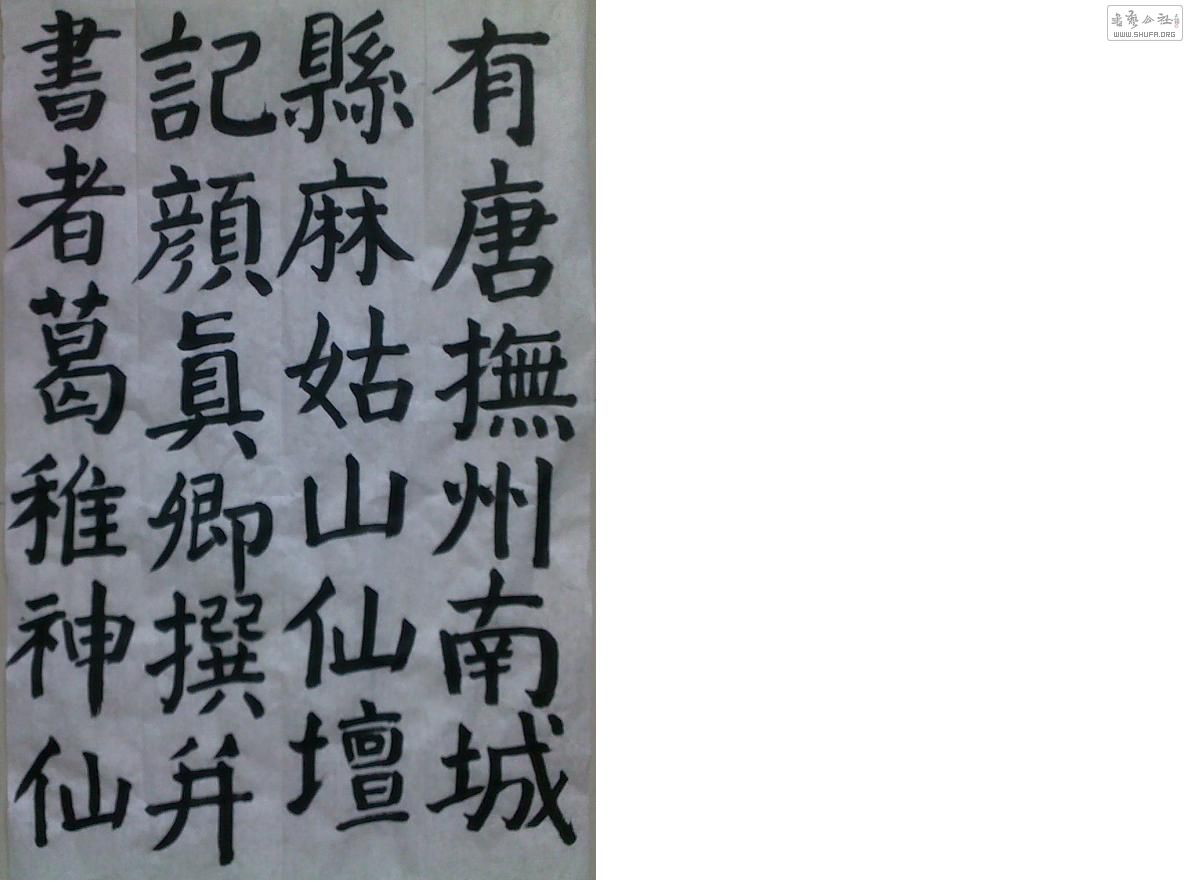 有唐撫州南城
縣麻姑山仙壇
記顏真卿撰并
書者葛稚神仙
書藝公社
WWW.SHUFA.ORG